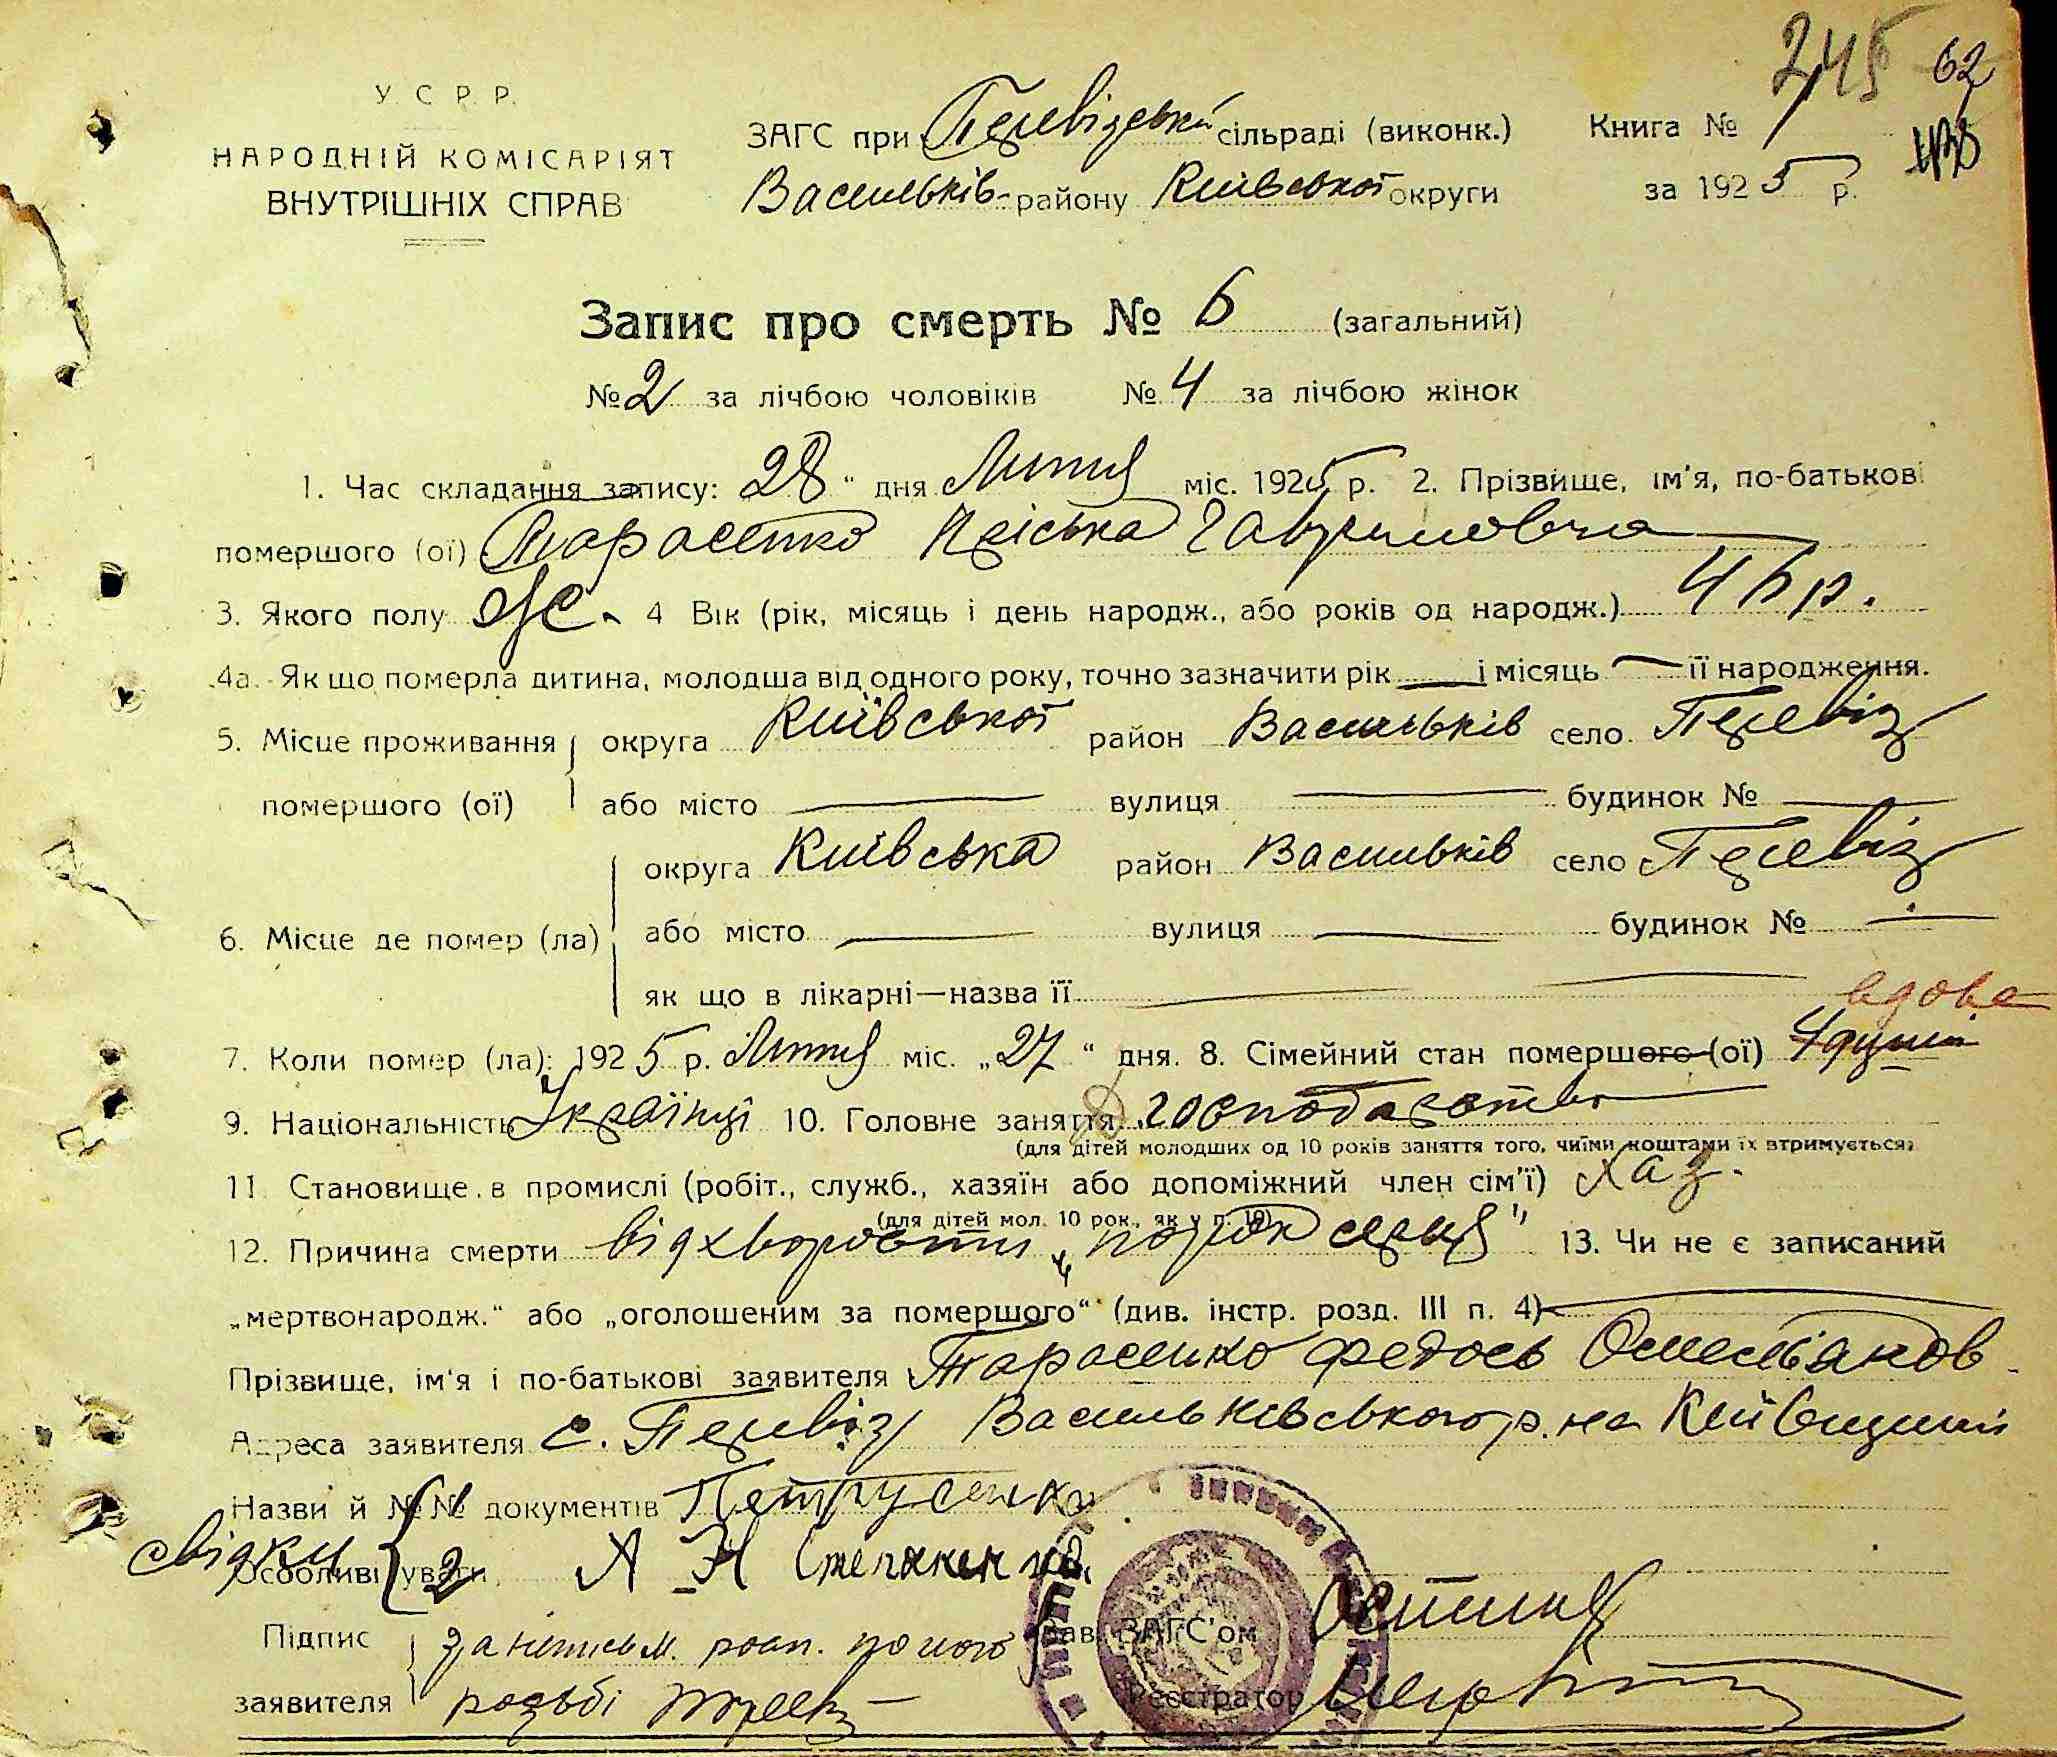 245 62
У. С. Р. Р.
НАРОДНІЙ КОМІСАРІЯТ
ВНУТРІШНІХ СПРАВ
ЗАГС при Перевізській сільраді (виконк.) Книга №
Васильків- району Київської округи за 1925 р.
Запис про смерть № 6 (загальний)
№ 2 за лічбою чоловіків № 4 за лічбою жінок
1. Час складання запису: 28 " дня Липня міс. 1925 р. 2. Прізвище, ім'я, по-батькові
помершого (ої) Тарасенко Пріська Гавриловна
3. Якого полу Ж. 4 Вік (рік, місяць і день народж., або років од народж.) 46 р.
4а. Як що померла дитина, молодша від одного року, точно зазначити рік — і місяць — її народження.
5. Місце проживання округа Київської район Васильків село Перевіз
помершого (ої) або місто — вулиця — будинок № —
округа Київська район Васильків село Перевіз
6. Місце де помер (ла) або місто — вулиця — будинок № —
як що в лікарні—назва її —
вдова
7. Коли помер (ла): 1925 р. Липня міс. „27 " дня. 8. Сімейний стан помершого (ої) 4 душі
9. Національність Українці 10. Головне заняття господарство
(для дітей молодших од 10 років заняття того, чиїми коштами їх втримується)
11. Становище в промислі (робіт., служб., хазяїн або допоміжний член сім'ї) Хаз.
(для дітей мол. 10 рок., як у п. 10)
12. Причина смерти від хворости „порок серця" 13. Чи не є записаний
„мертвонародж." або „оголошеним за помершого" (див. інстр. розд. III п. 4) —
Прізвище, ім'я і по-батькові заявителя Тарасенко Федось Омельянов
Адреса заявителя с. Перевіз Васильківського р. на Київщині
Назви й №№ документів 1 Петрусенко
свідки Особливі уваги 2 А Н Степаненко
Підпис за неписьм. розп. по його Зав. ЗАГС'ом
заявителя Реєстратор